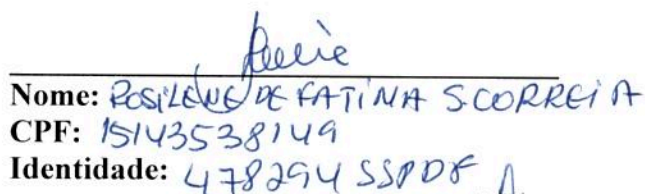 Nome: ROSILENE DE FATIMA S.CORREIA
CPF: 15143538149
Identidade: 478294 SSPDF